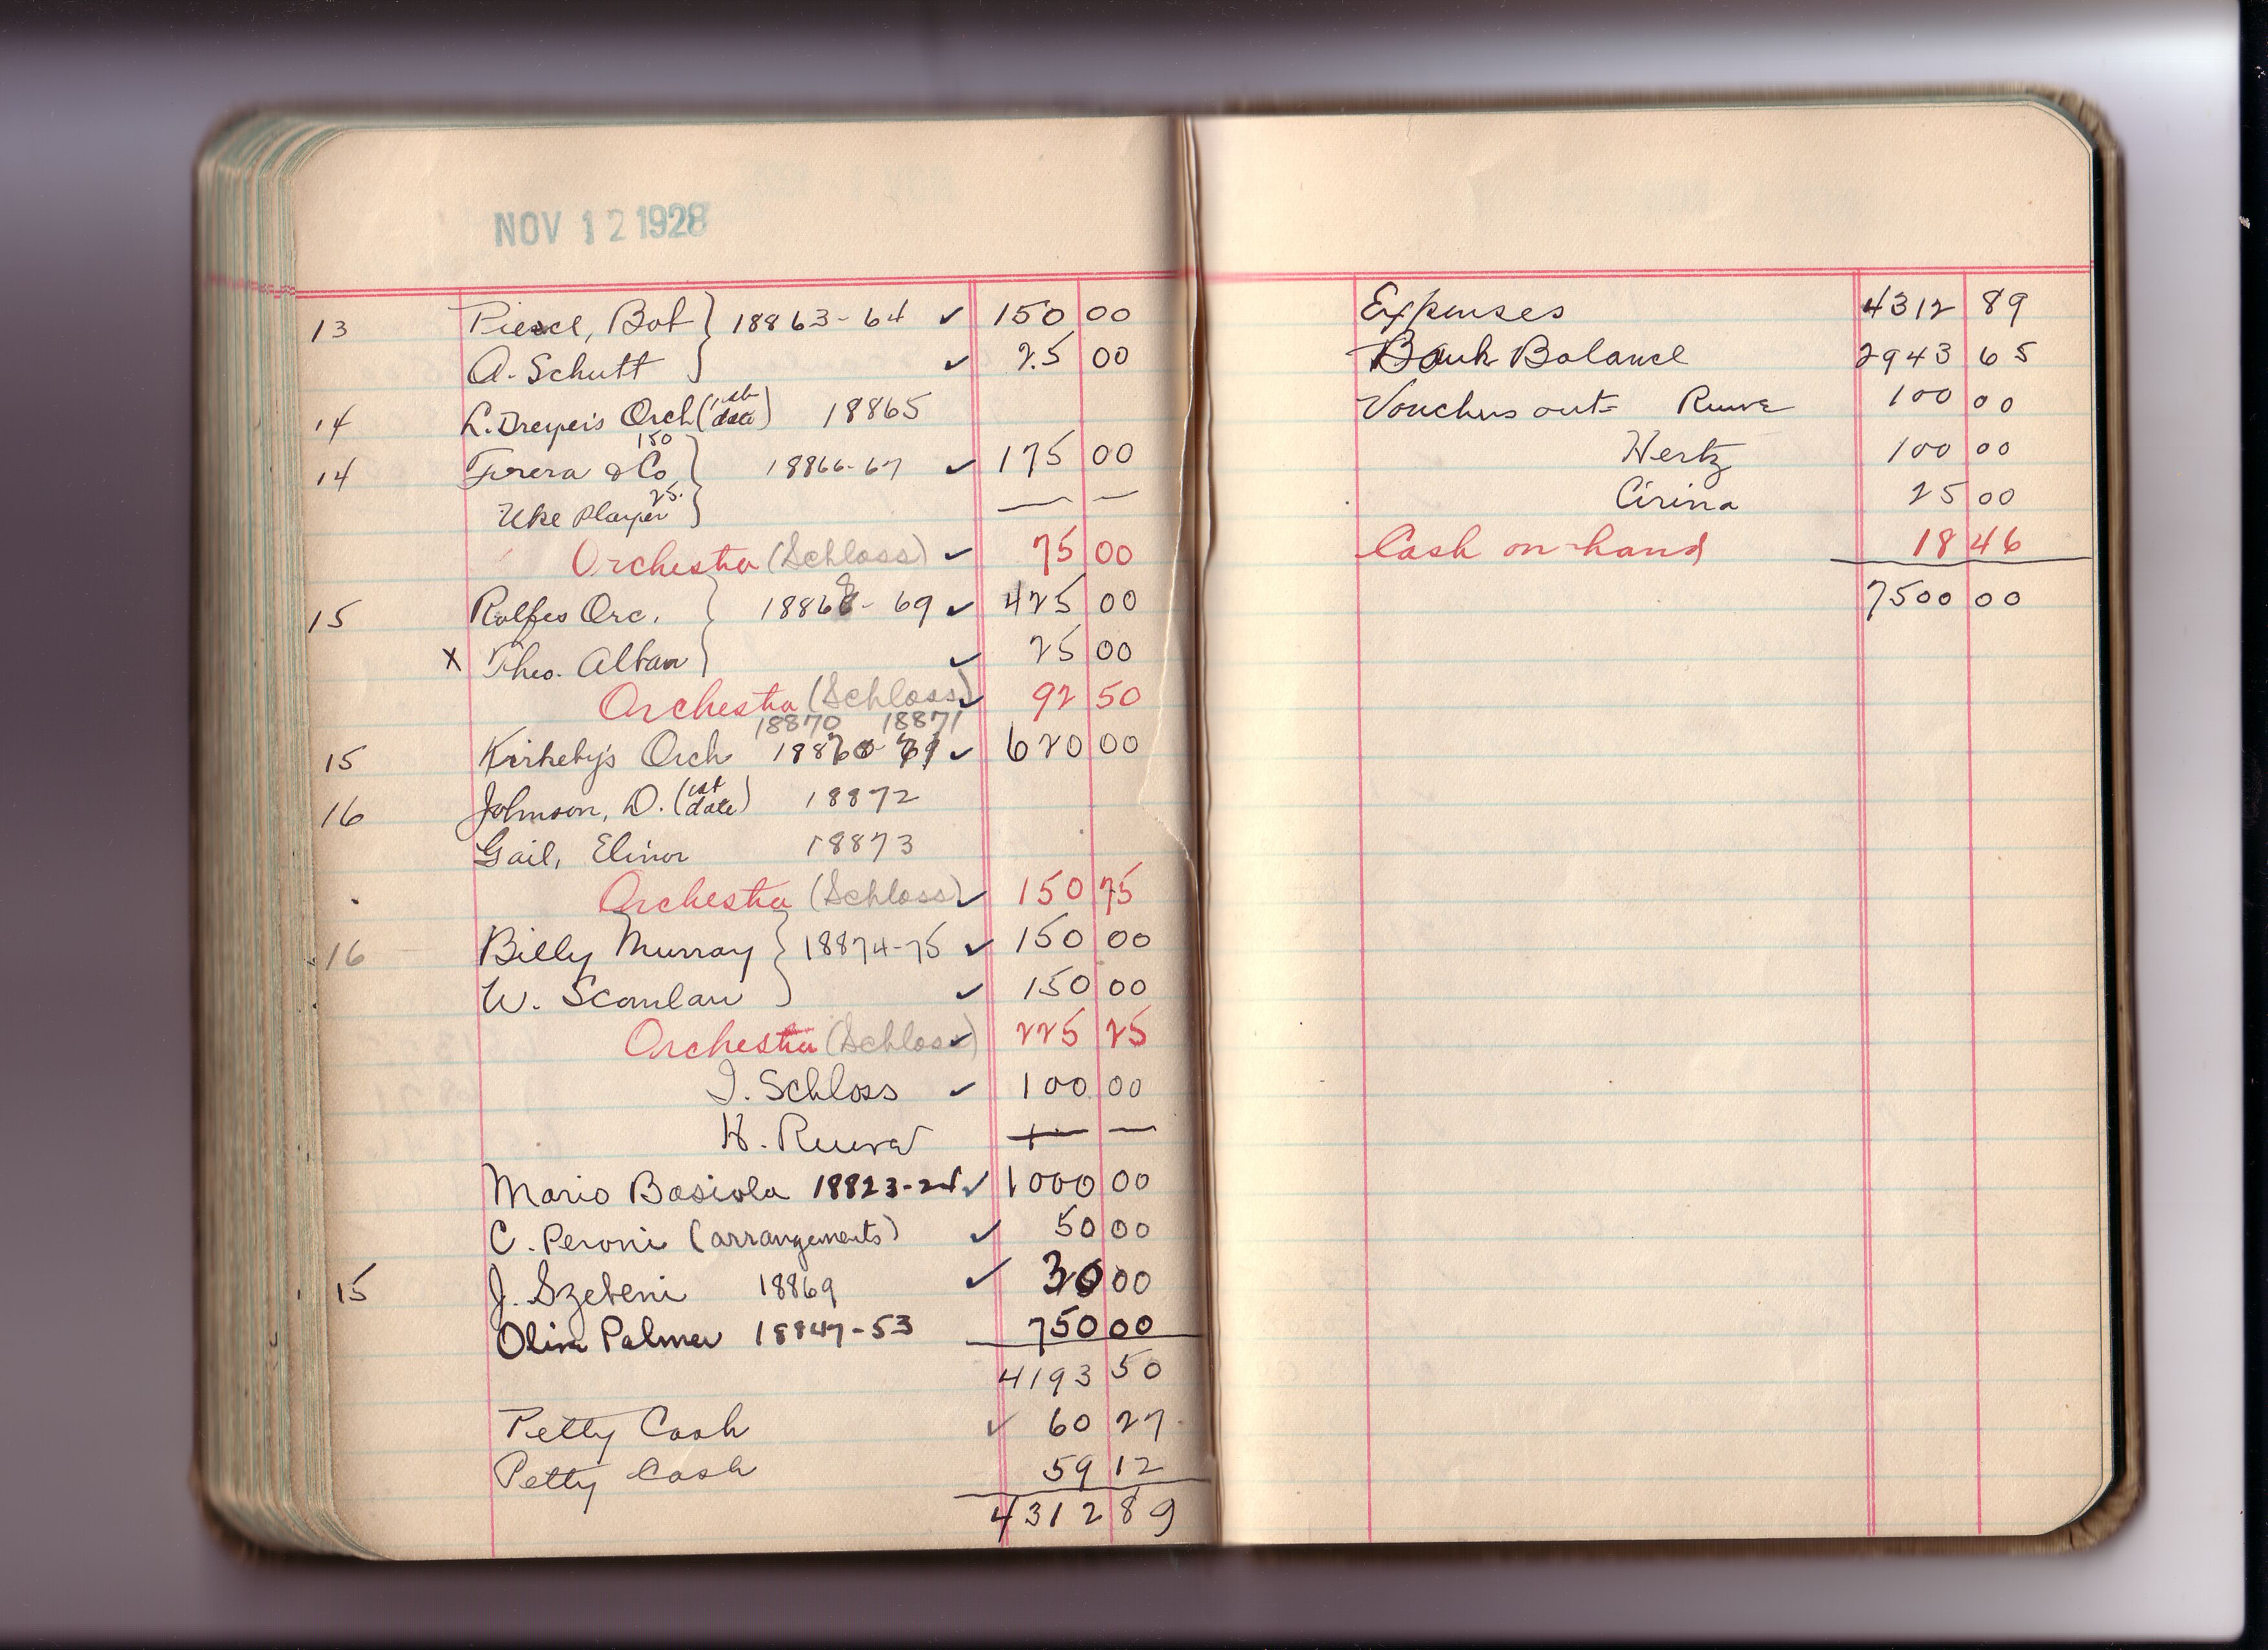 NOV 12 1928
13 Pierce, Bob } 18863-64 ✓ 150 00
A. Schutt ✓ 25 00
14 L. Dreyer's Orch (1st date) 18865
14 Ferera & Co 150 } 18866-67 ✓ 175 00
Uke Player 25. — —
Orchestra (Schloss) ✓ 75 00
15 Rolfes Orc. } 18868-69 ✓ 425 00
X Theo. Alban ✓ 25 00
Orchestra (Schloss) ✓ 92 50
18870 18871
15 Kirkeby's Orch ✓ 620 00
16 Johnson, D. (1st date) 18872
Gail, Elinor 18873
Orchestra (Schloss) ✓ 150 75
16 Billy Murray } 18874-75 ✓ 150 00
W. Scanlan ✓ 150 00
Orchestra (Schloss) ✓ 225 25
I. Schloss ✓ 100 00
H. Ruwe — —
Mario Basiola 18823-24 ✓ 1000 00
C. Peroni (arrangements) ✓ 50 00
15 J. Szebeni 18869 ✓ 30 00
Olive Palmer 18847-53 750 00
4193 50
Petty Cash ✓ 60 27
Petty Cash 59 12
4312 89
Expenses 4312 89
Bank Balance 2943 65
Vouchers out= Ruwe 100 00
Hertz 100 00
Cirina 25 00
Cash on-hand 18 46
7500 00